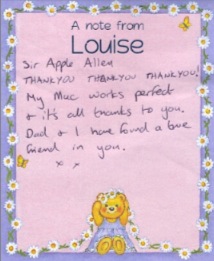 A note from
Louise
Sir Apple Allen
THANKYOU THANKYOU THANKYOU!
My Mac works perfect
& it's all thanks to you.
Dad & I have found a true
friend in you.
x x